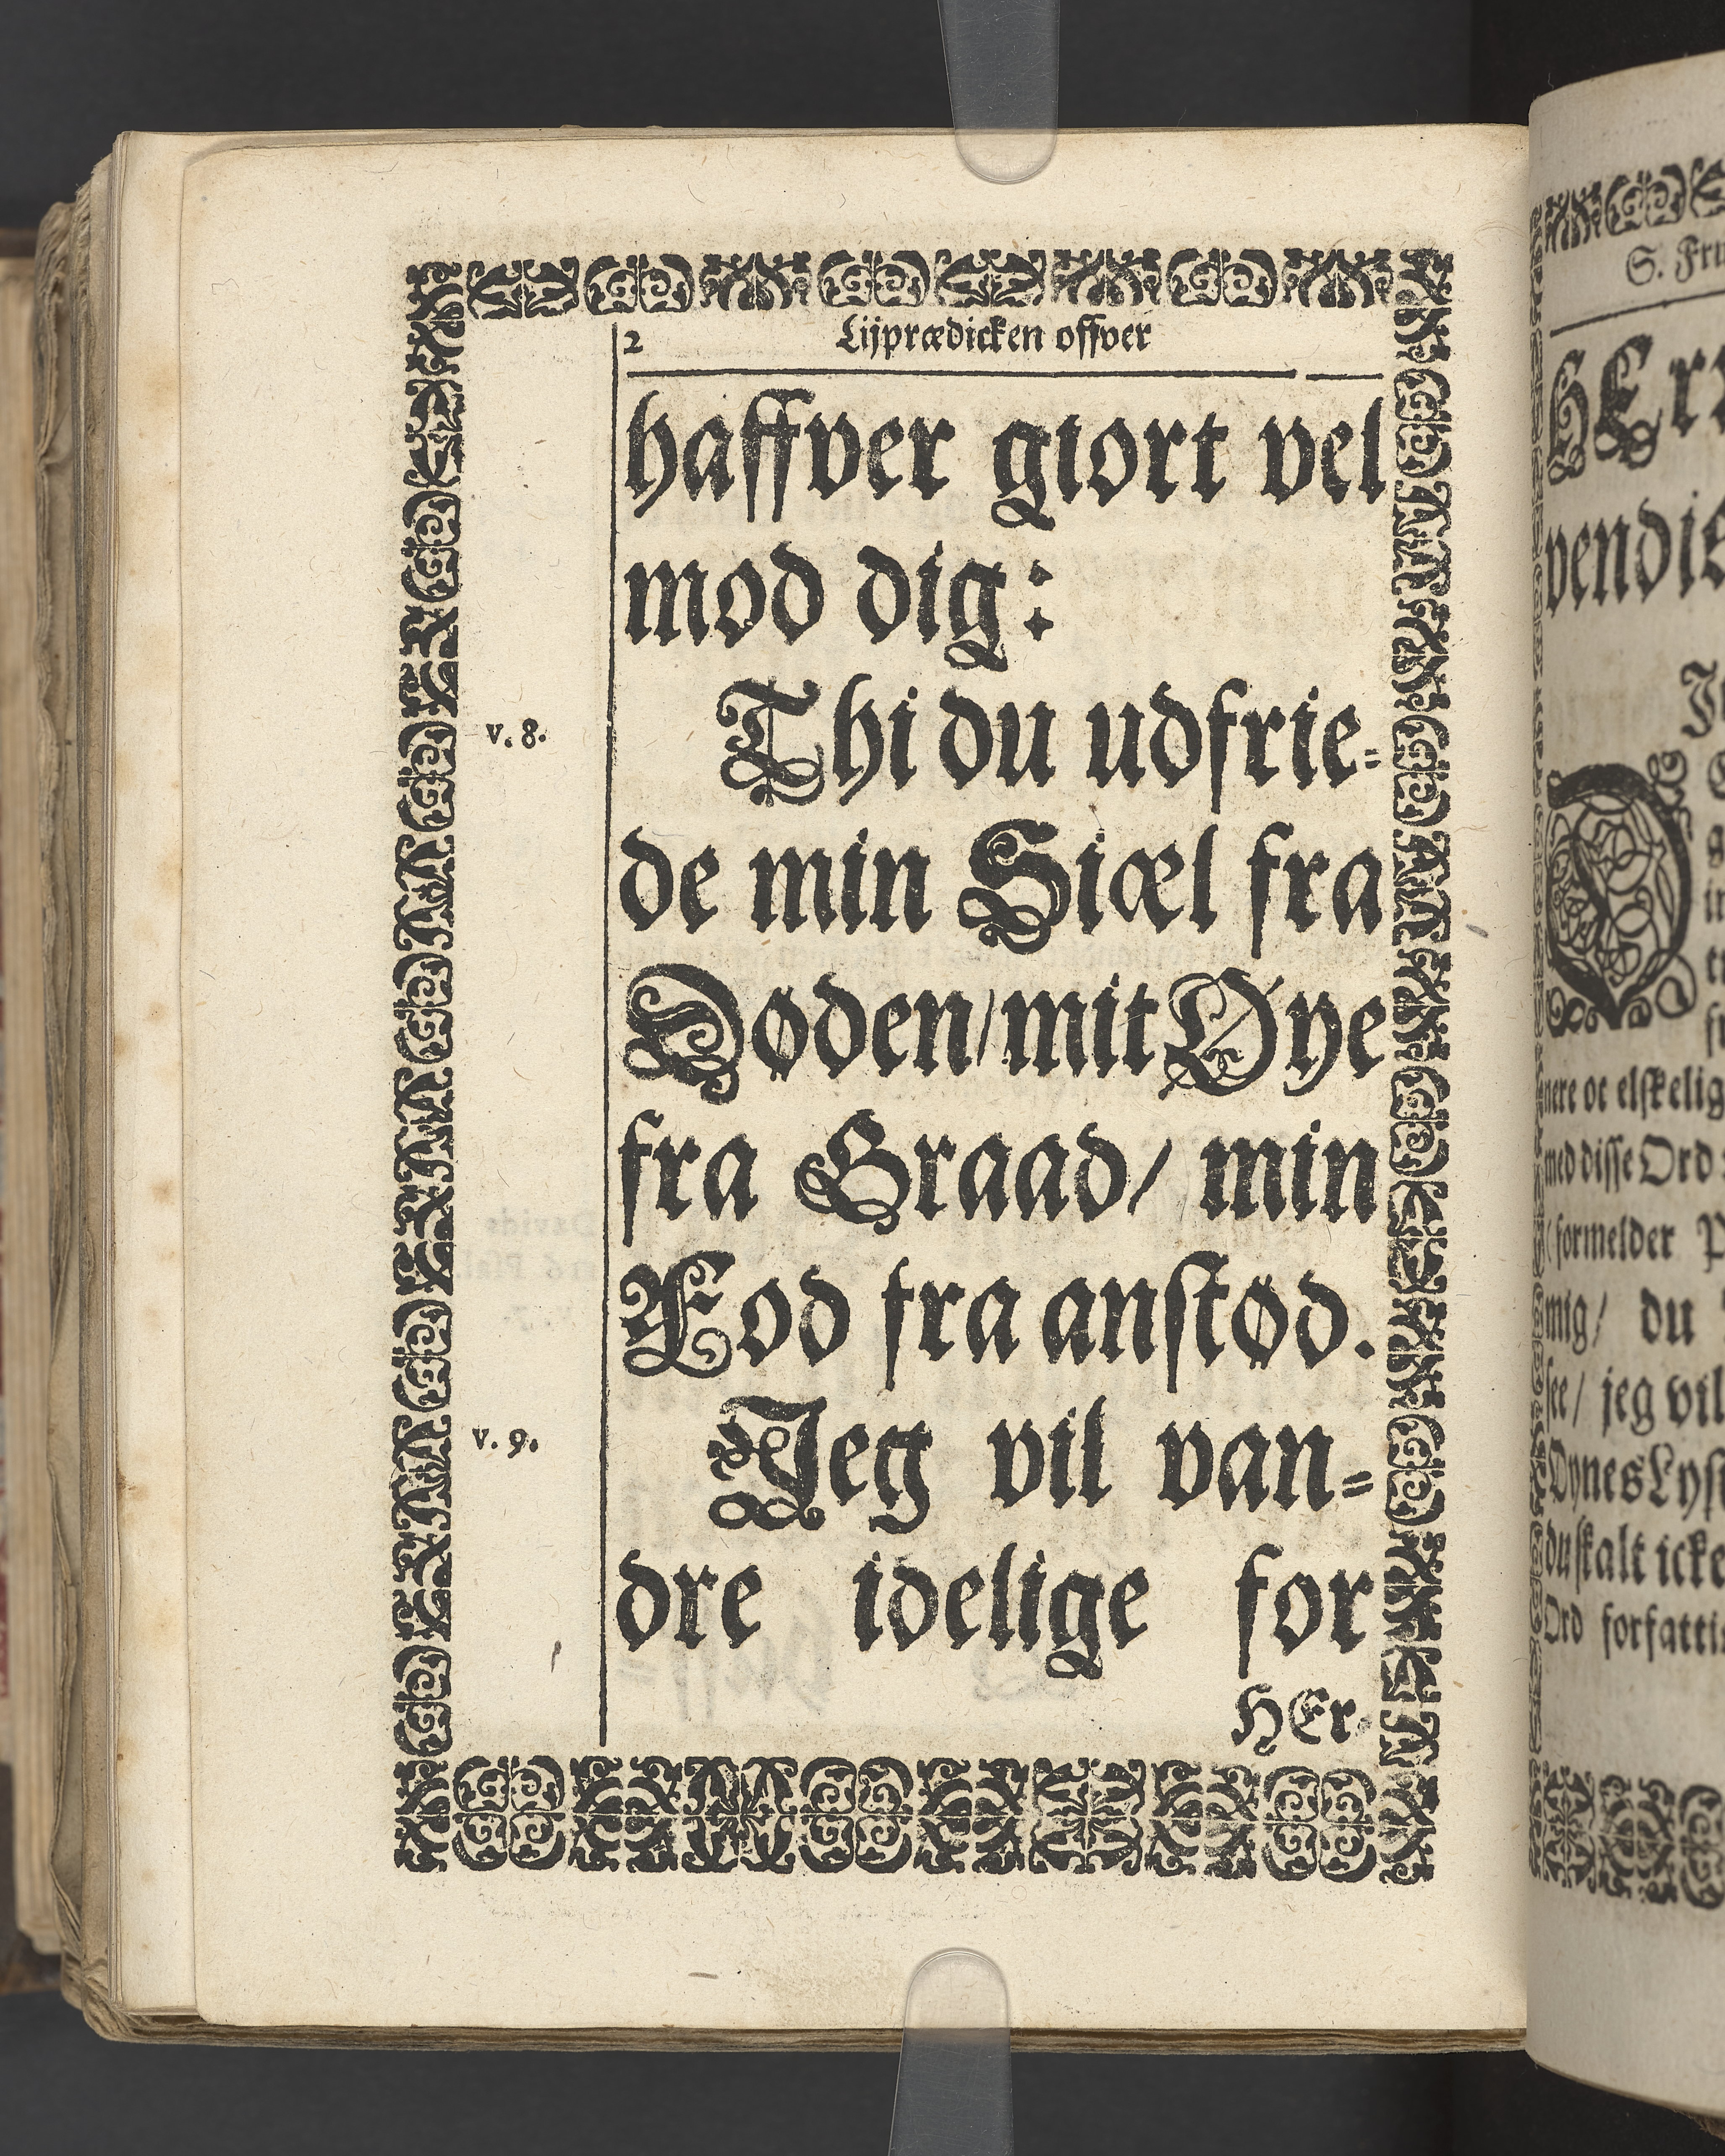 2 Lijprædicken offver
haffver giort vel
mod dig:
v. 8. Thi du udfrie=
de min Siæl fra
Døden/mit Øye
fra Graad/ min
Fod fra anstød.
v. 9. Jeg vil van=
dre idelige for
HEr-
S. Fru
HErr
vendis
nere oc elskelig
med disse Ord
(formelder P
mig/ du
see/ jeg vil
Øynes Lyst
du skalt icke
Ord forfattis